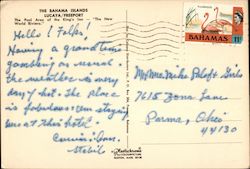 THE BAHAMA ISLANDS
LUCAYA/FREEPORT
The Pool Area of the King's Inn - "The New
World Riviera."
BAHAMAS
11¢
Hello! Folks,
Having a grand time
gambling as usual.
The weather is every
day hot. The place
is fabulous. Am staying
here at this hotel.
Mr & Mrs. Mike
7615 Zona Lane
Parma, Ohio
44130